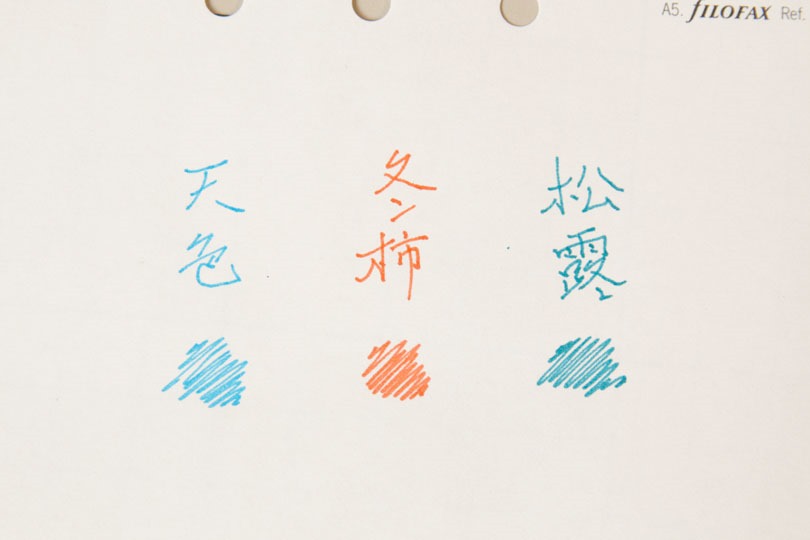 A5. fILOFAX Ref.
天色
冬柿
松露